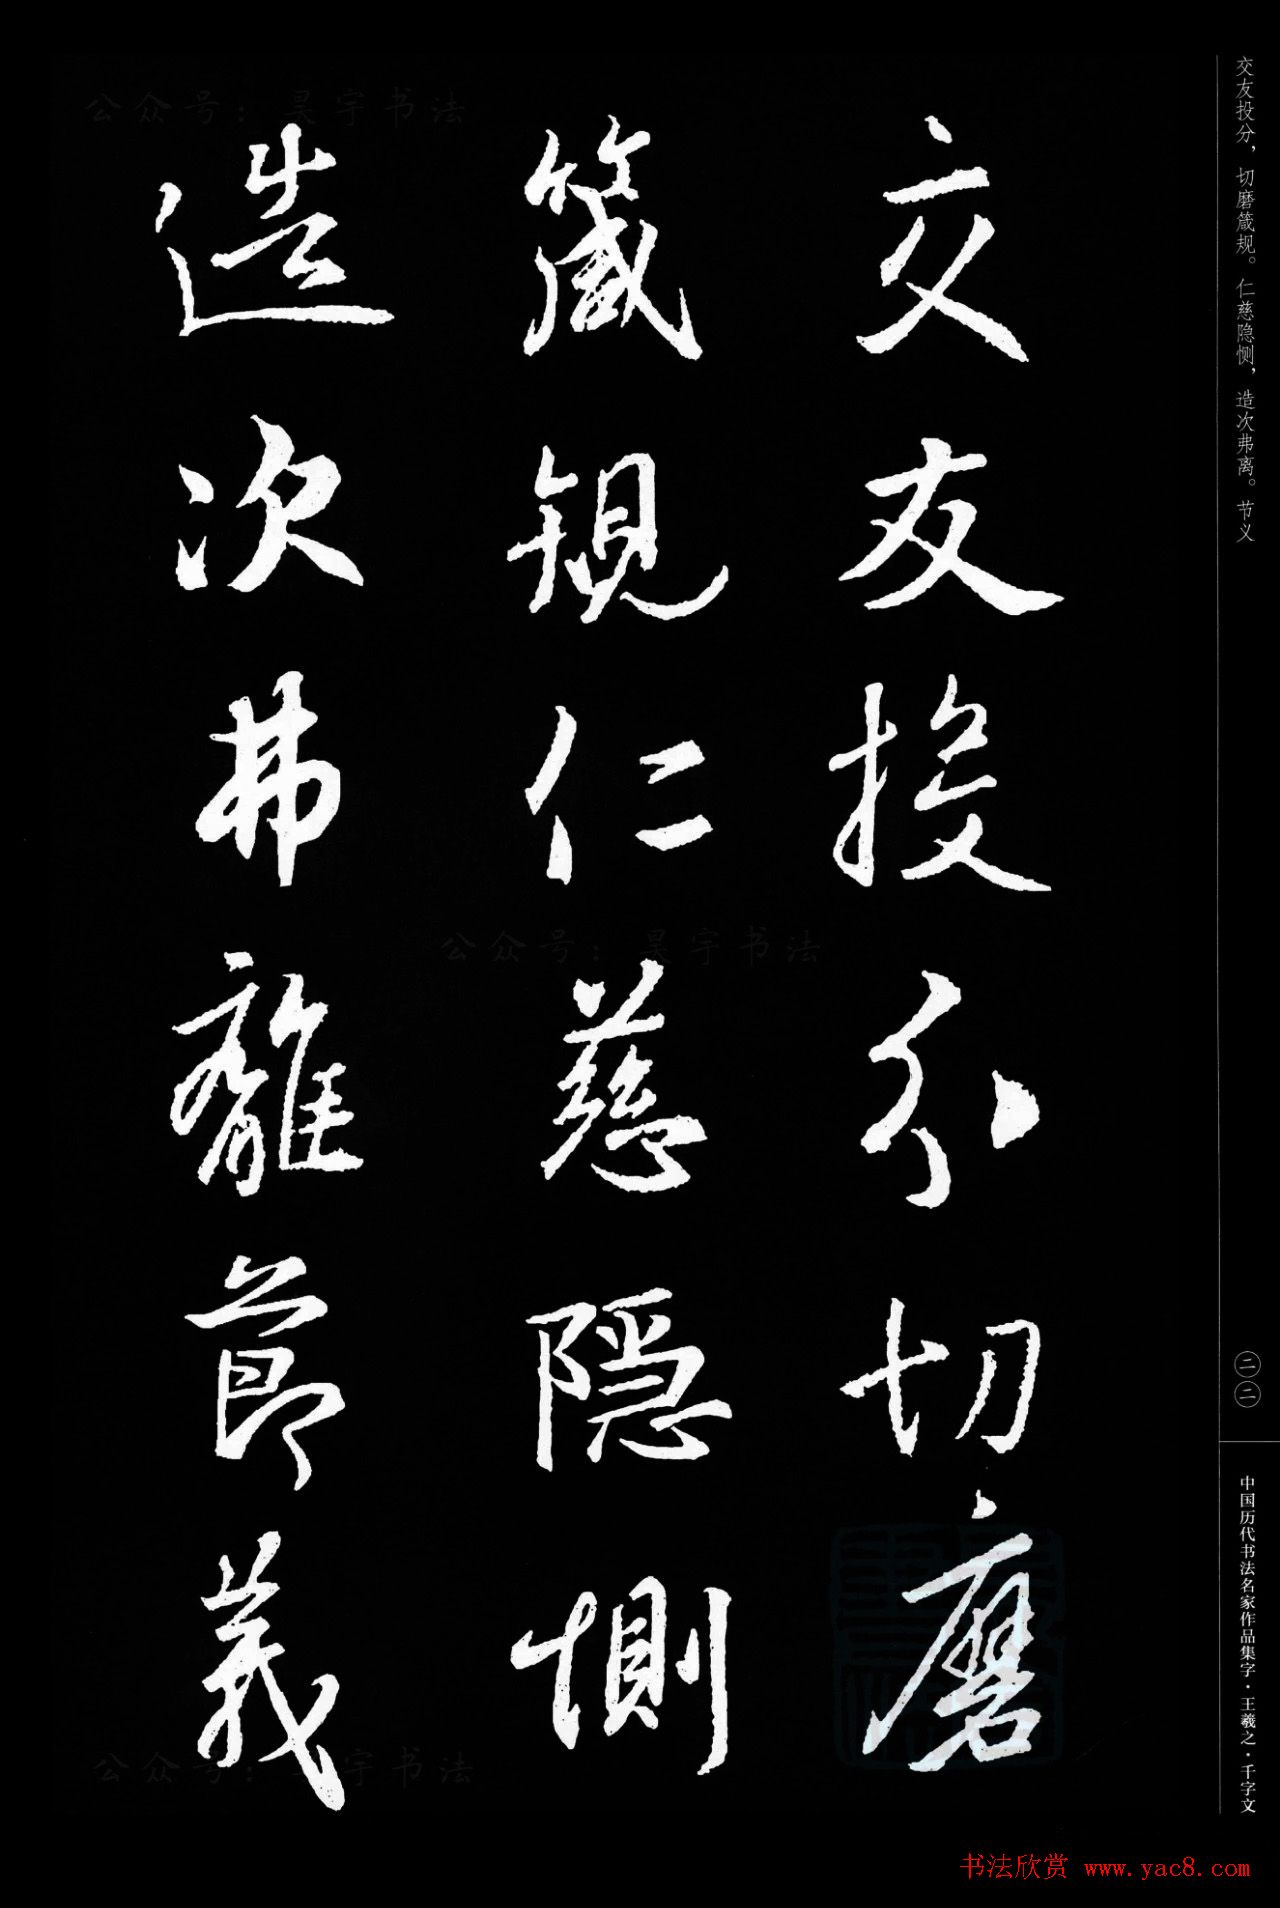 交友投分，切磨箴规。仁慈隐恻，造次弗离。节义
交友投分切磨
箴規仁慈隱惻
造次弗離節義
二二
中国历代书法名家作品集字·王羲之·千字文
公众号：昊宇书法
公众号：昊宇书法
公众号：昊宇书法
书法欣赏 www.yac8.com